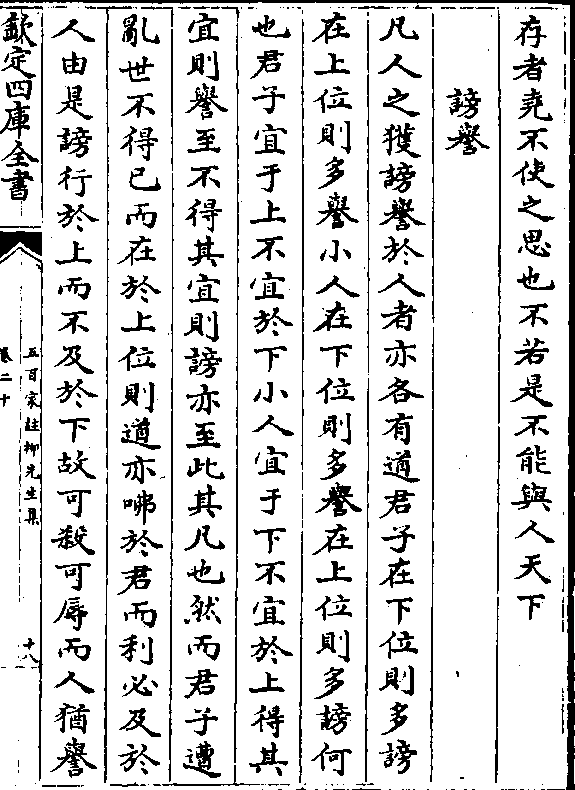 存者堯不使之思也不若是不能與人天下
謗譽
凡人之獲謗譽於人者亦各有道君子在下位則多謗
在上位則多譽小人在下位則多譽在上位則多謗何
也君子宜于上不宜於下小人宜于下不宜於上得其
宜則譽至不得其宜則謗亦至此其凡也然而君子遭
亂世不得已而在於上位則道亦咈於君而利必及於
人由是謗行於上而不及於下故可殺可辱而人猶譽
欽定四庫全書
五百家註柳先生集
卷二十
十八